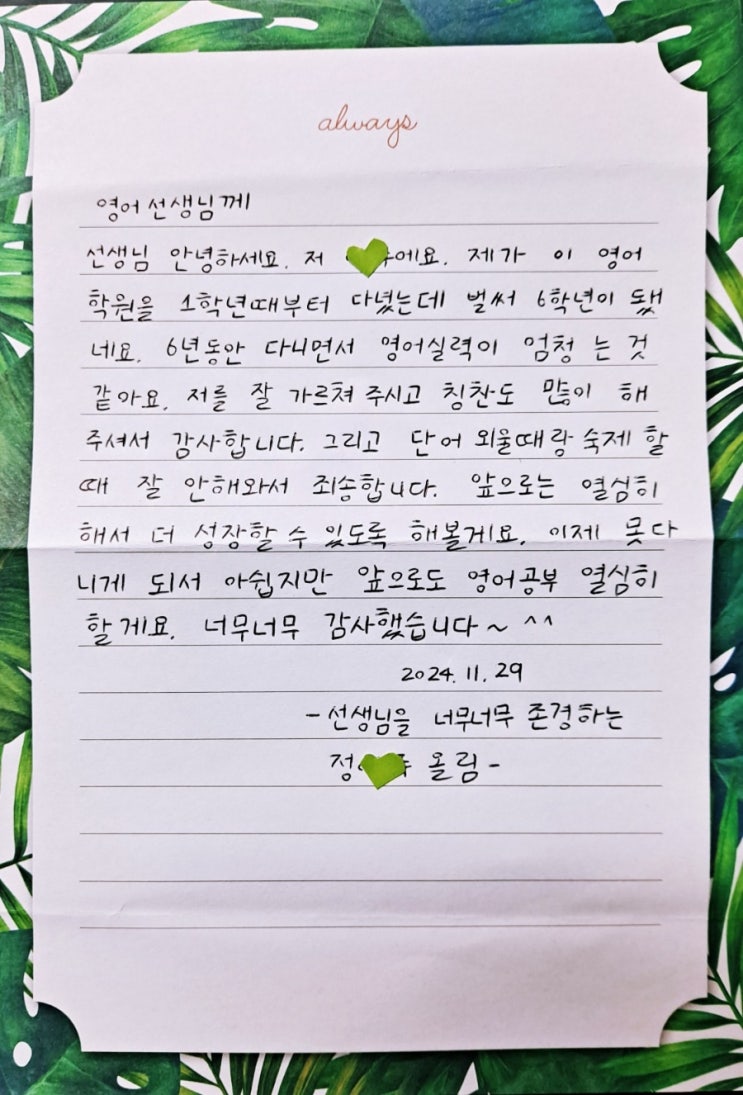 always
영어선생님께
선생님 안녕하세요. 저 에요. 제가 이 영어
학원을 1학년때부터 다녔는데 벌써 6학년이 됐
네요. 6년동안 다니면서 영어실력이 엄청 는 것
같아요. 저를 잘 가르쳐 주시고 칭찬도 많이 해
주셔서 감사합니다. 그리고 단어 외울때랑 숙제 할
때 잘 안해와서 죄송합니다. 앞으로는 열심히
해서 더 성장할 수 있도록 해볼게요. 이제 못다
니게 되서 아쉽지만 앞으로도 영어공부 열심히
할게요. 너무너무 감사했습니다~ ^^
2024. 11. 29
-선생님을 너무너무 존경하는
정 올림-